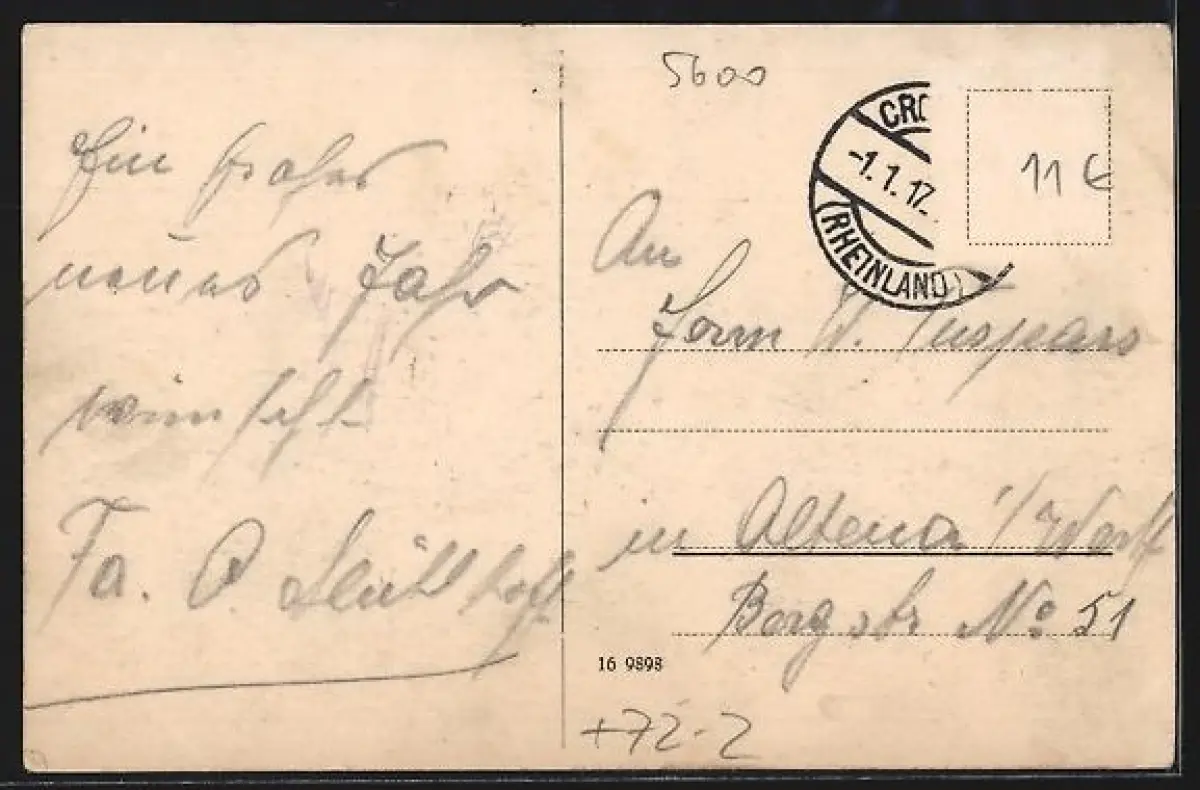 Ein frohes
neues Jahr
wünscht
Fa. O.
5600
CRO
-1.1.17.
(RHEINLAND)
11 €
An
Herrn W.
in Altena i/Westf
Borgstr No 51
16 9898
+72-2